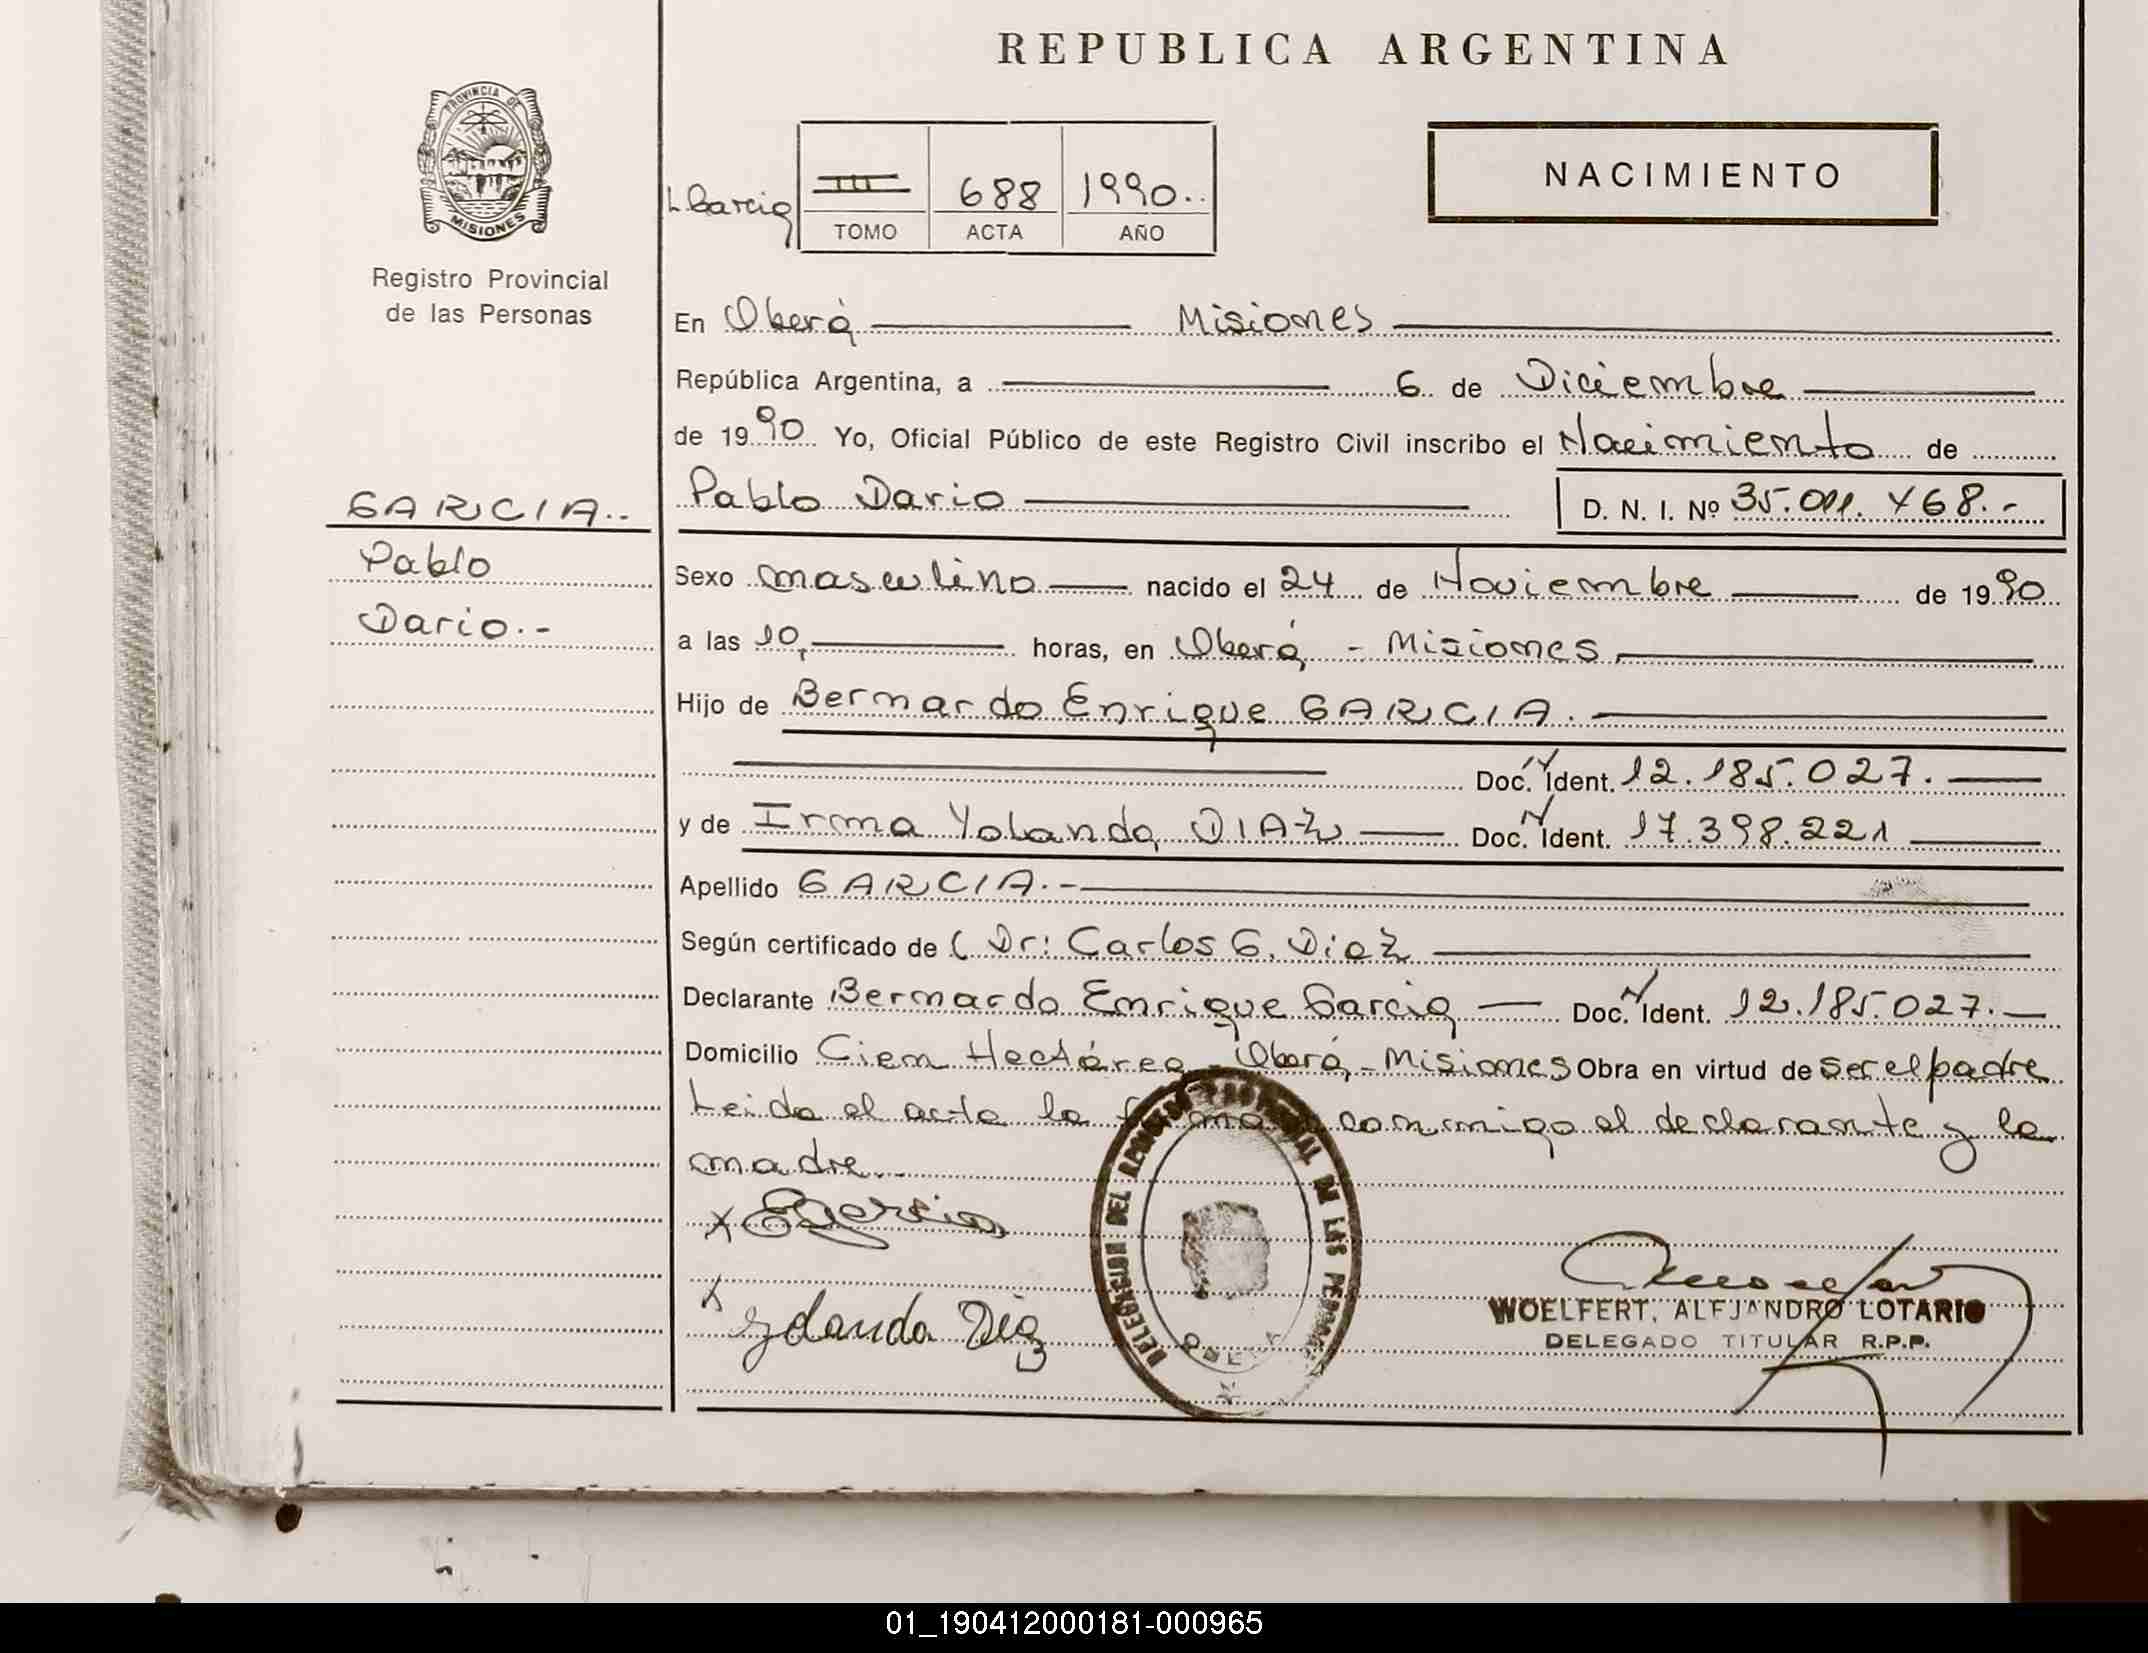 REPUBLICA ARGENTINA
PROVINCIA DE
MISIONES
Registro Provincial
de las Personas
NACIMIENTO
L. Garcia
III 688 1990..
TOMO ACTA AÑO
En Oberá Misiones
República Argentina, a 6 de Diciembre
de 1990 Yo, Oficial Público de este Registro Civil inscribo el Nacimiento de
GARCIA..
Pablo
Dario.-
Pablo Dario D. N. I. Nº 35.011.468.-
Sexo masculino nacido el 24 de Noviembre de 1990
a las 10, horas, en Oberá - Misiones
Hijo de Bernardo Enrique GARCIA.
Doc. Ident. 12.185.027.
y de Irma Yolanda DIAZ Doc. Ident. 17.398.221
Apellido GARCIA.-
Según certificado de ( Dr: Carlos G. Diaz
Declarante Bernardo Enrique Garcia Doc. Ident. 12.185.027.
Domicilio Cien Hectárea - Oberá - Misiones Obra en virtud de ser el padre
Leida el acta la firma conmigo el declarante y la
madre..
x EGarcia
x Yolanda Diaz
DELEGACION DEL REGISTRO PROVINCIAL DE LAS PERSONAS
WOELFERT, ALEJANDRO LOTARIO
DELEGADO TITULAR R.P.P.
01_190412000181-000965